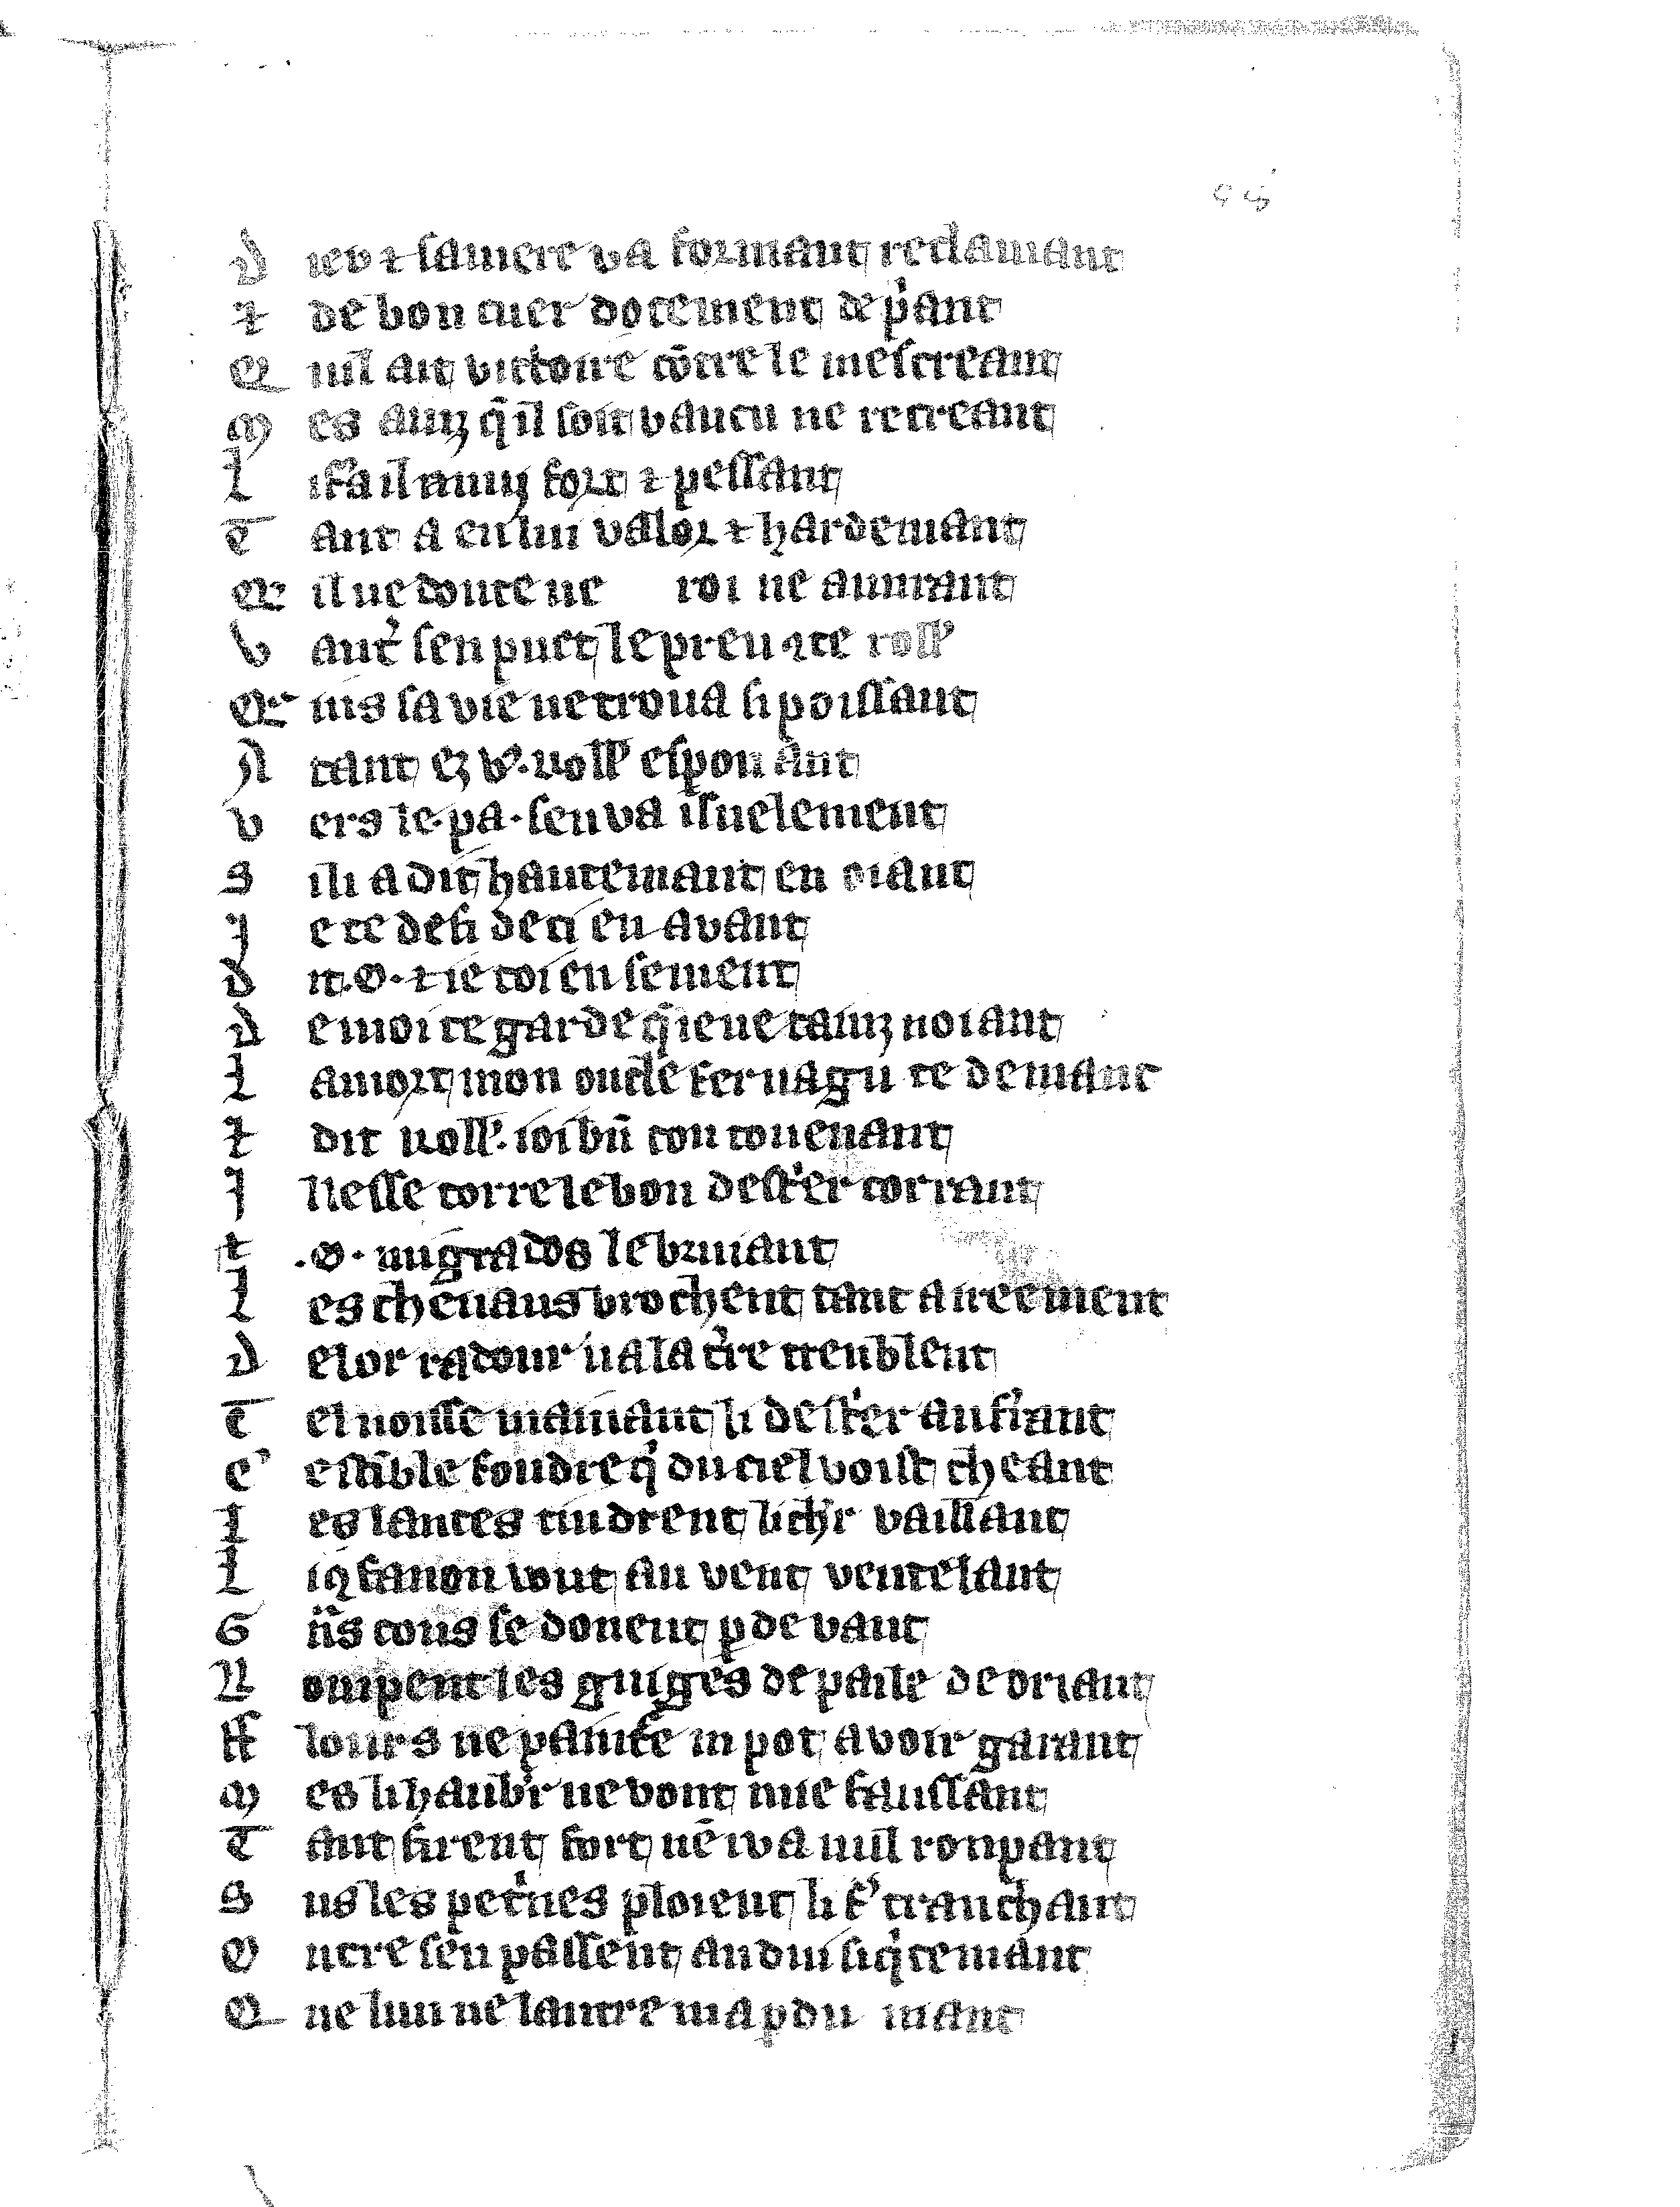 D ieu ⁊ sa mere va formant reclamant
⁊ de bon cuer docement dep̄ant
Q uil ait victoire cōtre le mescreant
M es ainz q̄ il soit vancu ne recreant
L
T ant a en lui valor ⁊ hardemant
Q il ne doute ne roi ne amirant
V aut̾ sen puet le preu 9te roll'
Q ins sa vie ne trova si poissant
A tant ez v9. roll' espon ant
V ers le .pa. sen va isnelement
S ili a dit hautemant en oiant
J e te defi deci en avant
D it .O. ⁊ ie toi ensement
D e moi te garde q̄ ie ne taim noiant
L a mort mon oncle fernagu te demant
⁊ dit roll'. ioi bn̄ ton covenant
J llesse corre le bon dest'er corrant
⁊ .O. mugrados le bruiant
L es chevaus brochent tant aireement
D e lor radour va la t̾re tremblent
T el noisse mainant li dest'er aufirant
C estāble foudre q̄ du ciel voist cheant
L es lances tindrent li ch'r vaillant
L i 9fanon vont au vent ventelant
G ñs cous se donent p devant
R ompent les guiges de paile de oriant
lours ne painte ni pot avoir garant
M es li haub'r ne vont mie faussant
T ant firent fort nē i va nuil ronpant
S us les pet'nes ploient li f' tranchant
O utre sen passent andui si q̄temant
Q ne lun ne lautre ma pdu mant